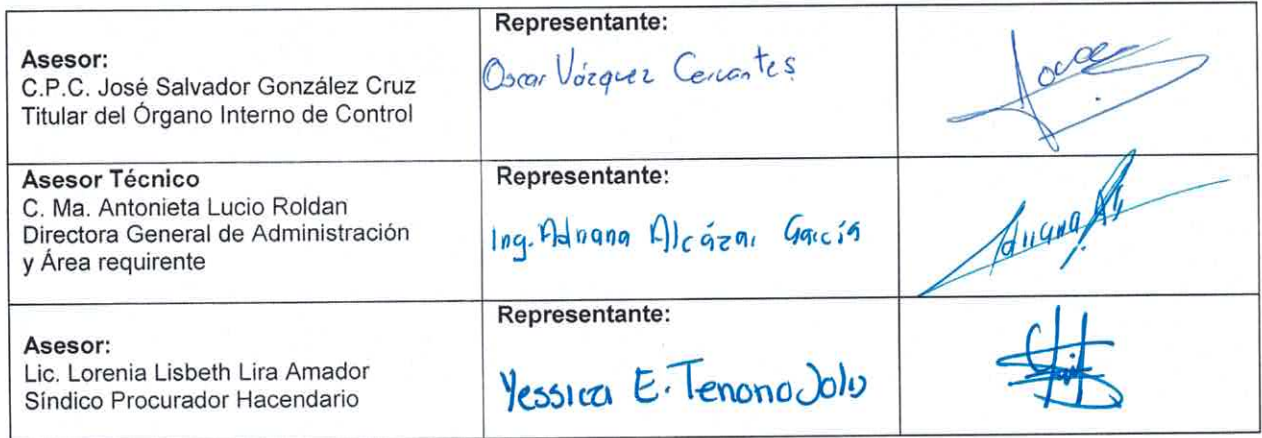 Asesor:
C.P.C. José Salvador González Cruz
Titular del Órgano Interno de Control
Representante:
Oscar Vázquez Cervantes
Asesor Técnico
C. Ma. Antonieta Lucio Roldan
Directora General de Administración
y Área requirente
Representante:
Ing. Adriana Alcázar García
Adriana
Asesor:
Lic. Lorenia Lisbeth Lira Amador
Síndico Procurador Hacendario
Representante:
Yessica E.